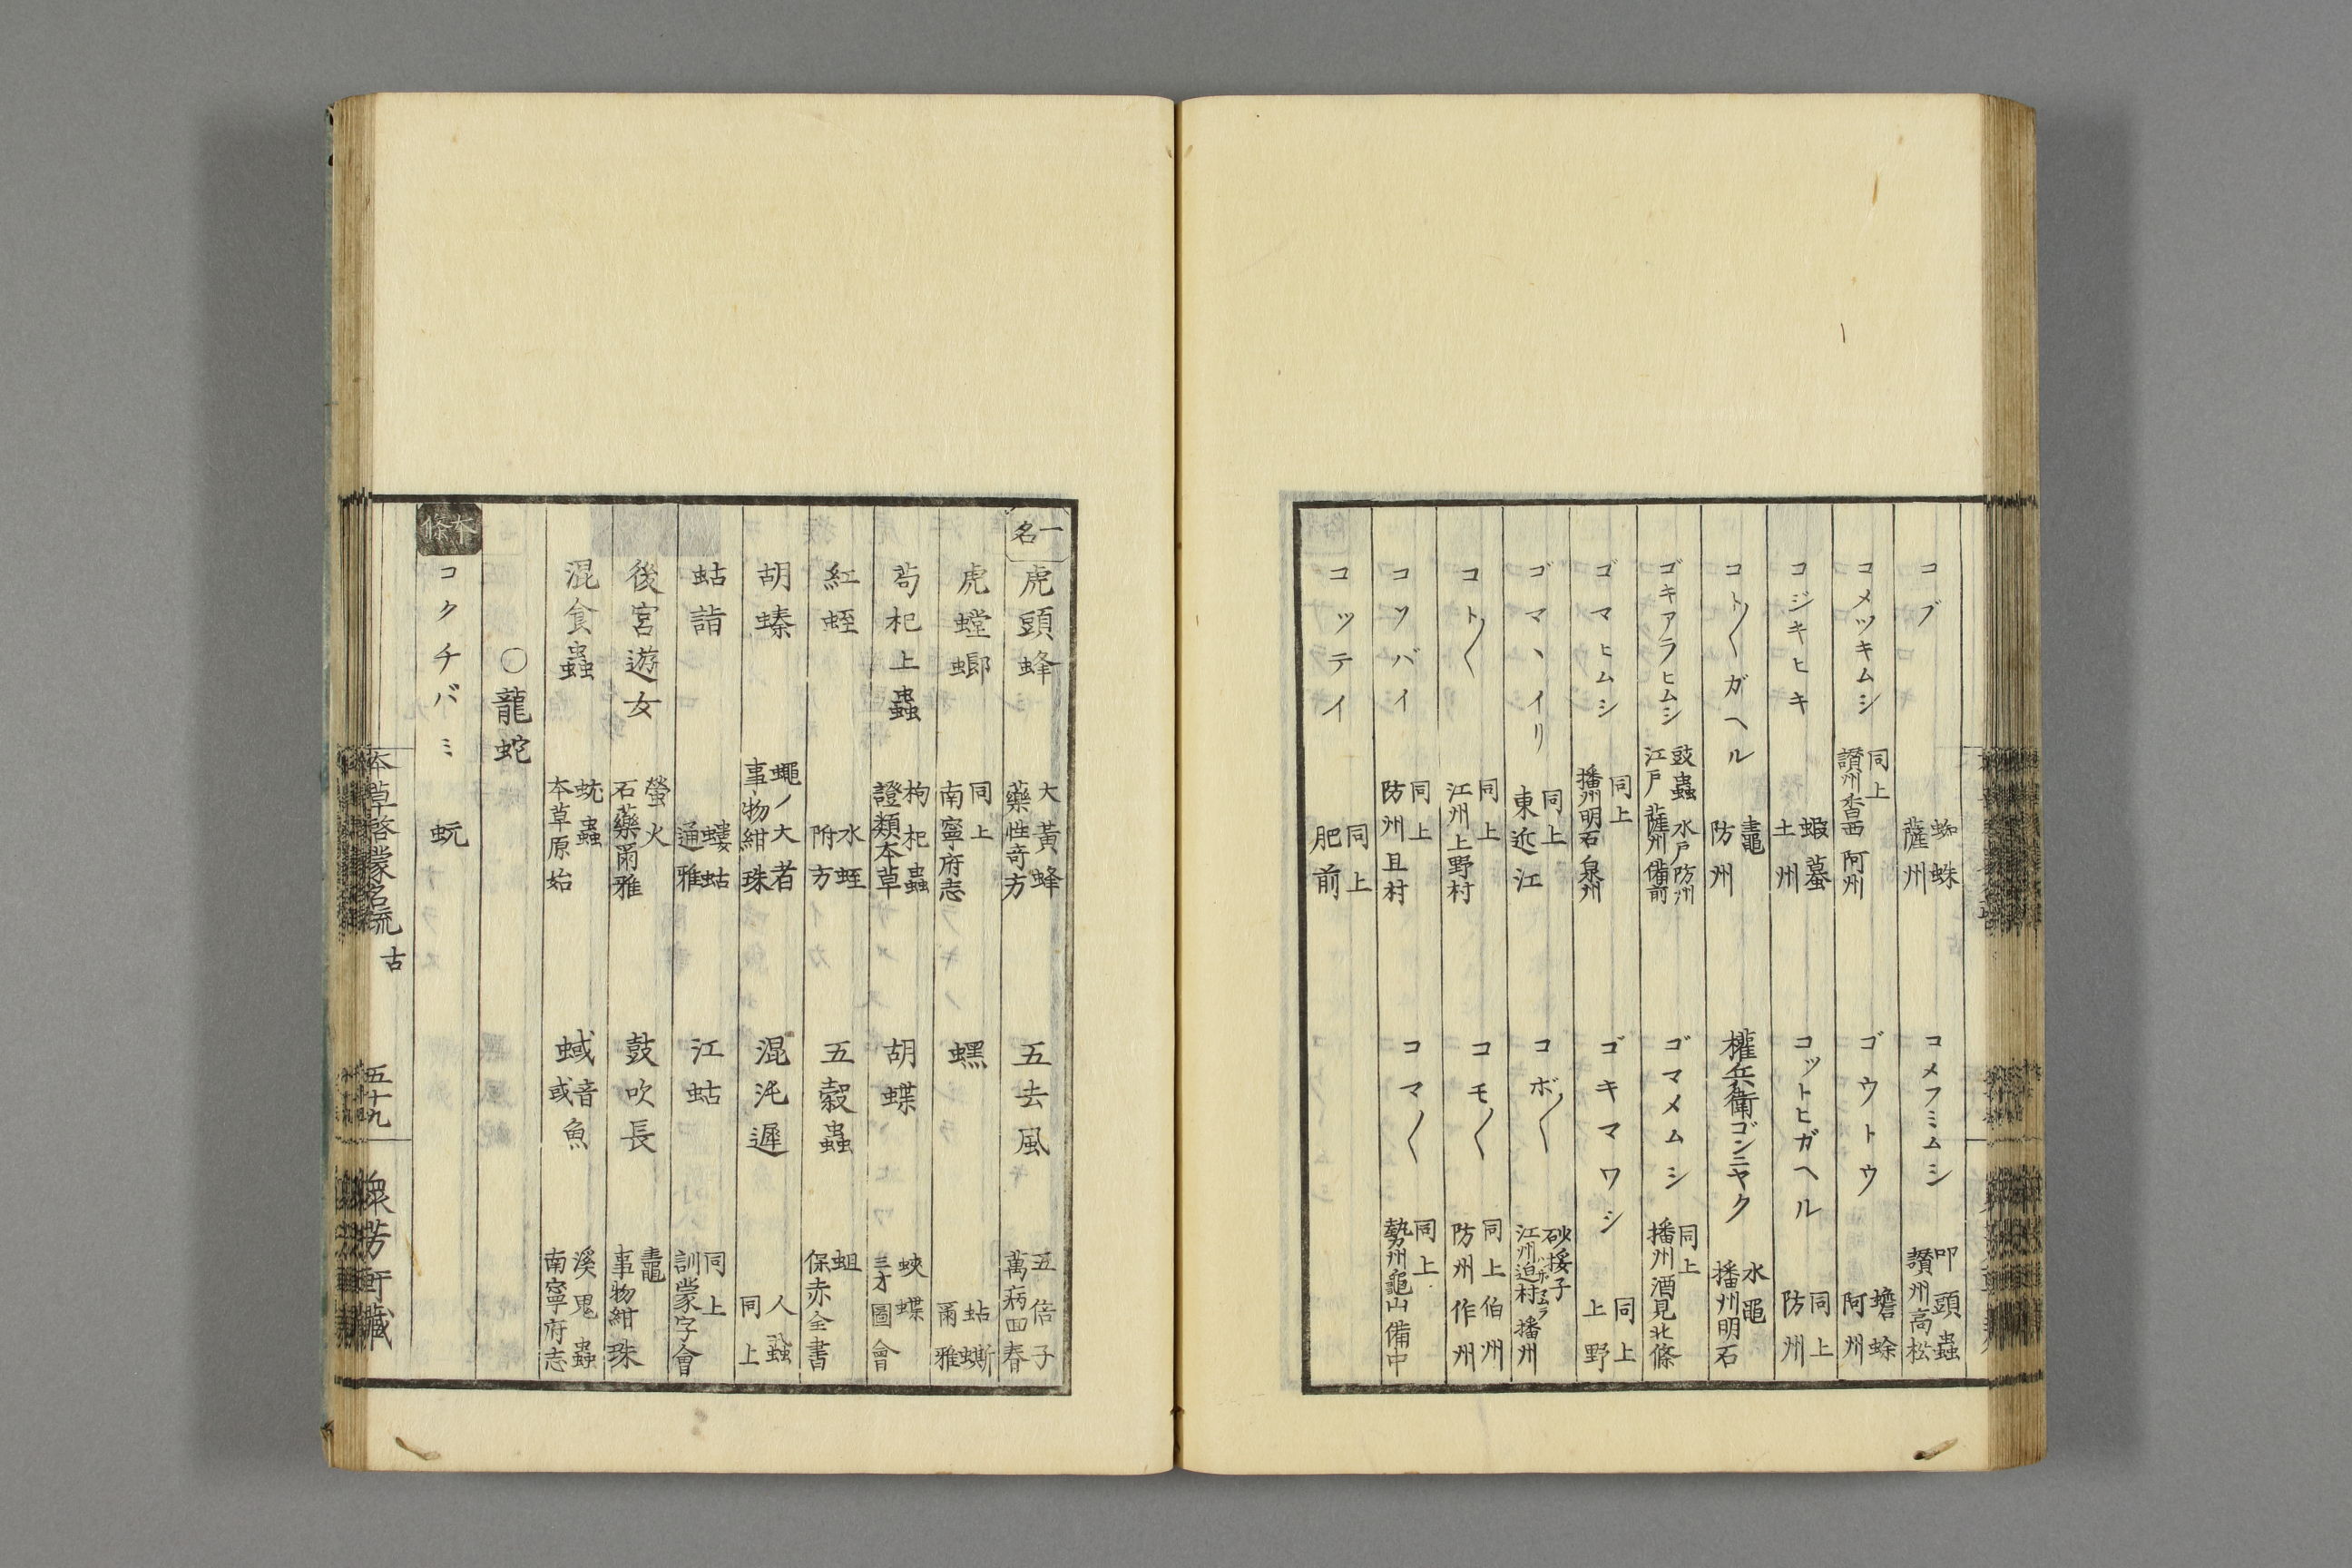 コブ 蜘蛛 薩州
コメフミムシ 叩頭蟲 讃州高松
コメツキムシ 同上 讃州香西 阿州
ゴウトウ 蟾蜍 阿州
コジキヒキ 蝦蟇 土州
コットヒガヘル 同上 防州
コト〱ガヘル 鼃 防州
權兵衛ゴンニヤク 水黽 播州明石
ゴキアラヒムシ 豉蟲 水戸 防州 江戸 薩州 備前
ゴマメムシ 同上 播州酒見北條
ゴマヒムシ 同上 播州明石 泉州
ゴキマワシ 同上 上野
ゴマヽイリ 同上 東近江
コボ〱 砂挼子 江州迫村 播州
コト〱 同上 江州上野村
コモ〱 同上 伯州 防州 作州
コツバイ 同上 防州且村
コマ〱 同上 勢州龜山 備中
コッテイ 同上 肥前
一名
虎頭蜂 大黃蜂 藥性奇方
五去風 五倍子 萬病回春
虎螳螂 同上 南寧府志
蟔 蛅蟴 爾雅
茍杞上蟲 枸杞蟲 證類本草
胡蝶 蛺蝶 三才圖會
紅蛭 水蛭 附方
五穀蟲 蛆 保赤全書
胡螓 蠅ノ大者 事物紺珠
混沌遲 人蝨 同上
蛄䗣 螻蛄 通雅
江蛄 同上 訓蒙字會
後宮遊女 螢火 石藥爾雅
鼓吹長 鼃 事物紺珠
混食蟲 蚘蟲 本草原始
蜮音或魚 溪鬼蟲 南寧府志
○龍蛇
本條
コクチバミ 蚖
本草啓蒙名疏 古 五十九 衆芳軒藏